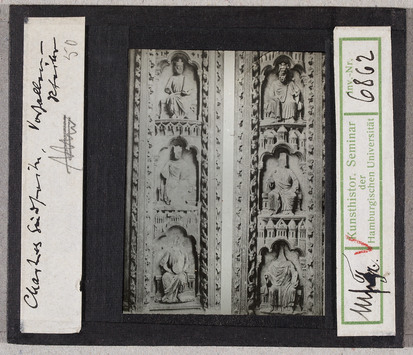 Chartres Südportik Vorhallen-
Pfeiler
50
Kunsthistor. Seminar
der
Hamburgischen Universität
Inv.-Nr.
6862